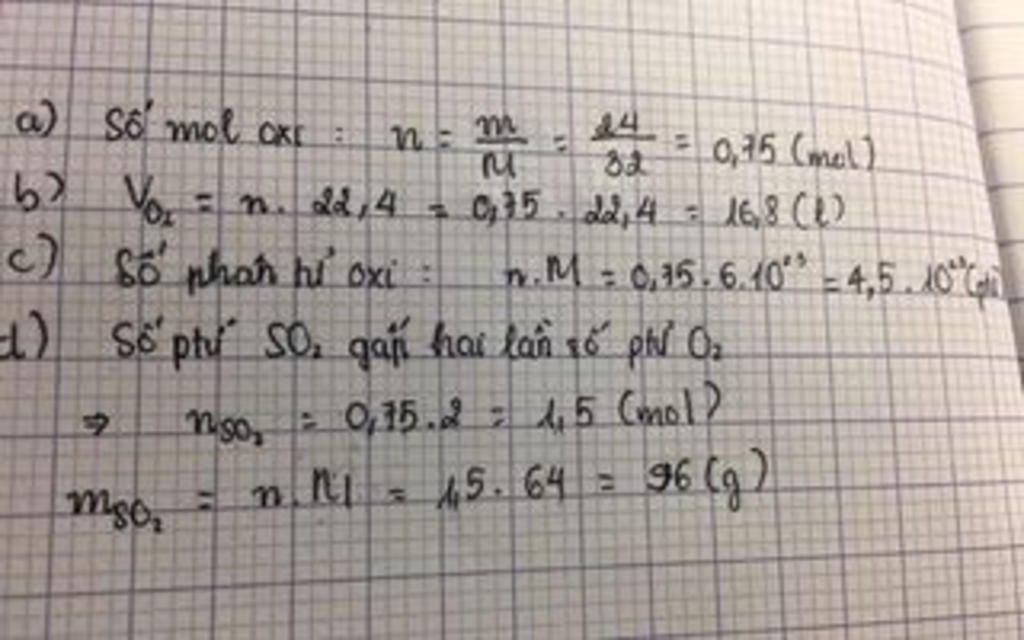 a) Số mol oxi : n = m/M = 24/32 = 0,75 (mol)
b) V_O₂ = n. 22,4 = 0,75 . 22,4 = 16,8 (l)
c) Số phân tử oxi : n.M = 0,75 . 6.10²³ = 4,5 . 10²³ (ptử
d) Số ptử SO₂ gấp hai lần số ptử O₂
⇒ n_SO₂ = 0,75.2 = 1,5 (mol)
m_SO₂ = n.M = 1,5. 64 = 96 (g)